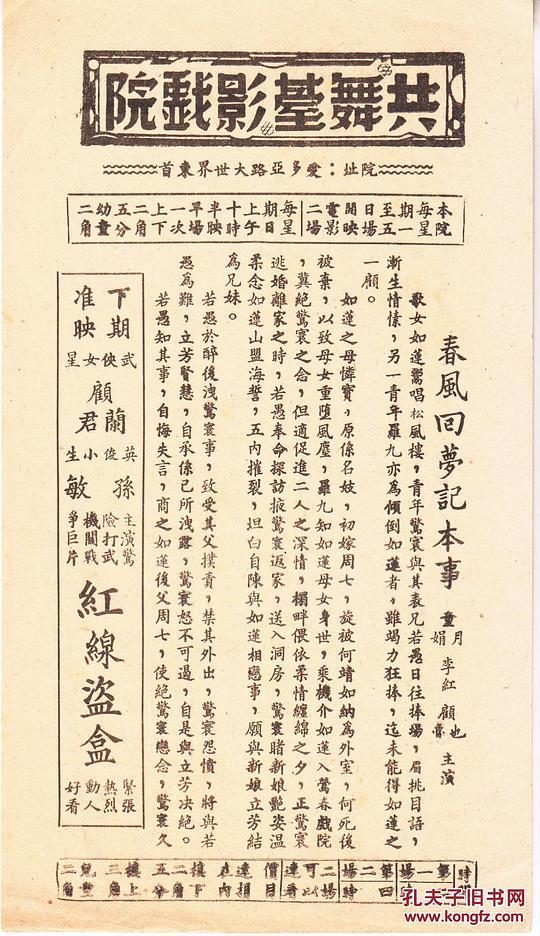 共舞臺影戲院
院址：愛多亞路大世界東首
本院每星期一至五日場開映電影二場
每星期日上午十時半映早場一次上下二角五分幼童二角
春風回夢記本事
童月娟 李紅 顧也魯 主演
歌女如蓮鬻唱松風樓，青年驚寰與其表兄若愚日往捧場，眉挑目語，
漸生情愫，另一青年羅九亦為傾倒如蓮者，雖竭力狂捧，迄未能得如蓮之
一顧。
如蓮之母憐寶，原係名妓，初嫁周七，旋被何靖如納為外室，何死後
被棄，以致母女重墮風塵，羅九知如蓮母女身世，乘機介如蓮入鶯春戲院
，冀絕驚寰之念，但適促進二人之深情，榻畔偎依柔情纏綿之夕，正驚寰
逃婚離家之時，若愚奉命探訪掖驚寰返家，送入洞房，驚寰睹新娘艷姿溫
柔念如蓮山盟海誓，五內摧裂，坦白自陳與如蓮相戀事，願與新娘立芳結
為兄妹。
若愚於醉後洩驚寰事，致受其父撲責，禁其外出，驚寰怨憤，將與若
愚為難，立芳賢慧，自承係己所洩露，驚寰怒不可遏，自是與立芳決絕。
若愚知其事，自悔失言，商之如蓮後父周七，使絕驚寰戀念，驚寰久
下期准映
武俠女星
顧蘭君
英俊小生
孫敏
主演驚險打武機關戰爭巨片
紅線盜盒
緊張熱烈動人好看
場
第四
二場
可以
價目
樓下
二角
五分
樓上
三角
兒童
二角
孔夫子旧书网
www.kongfz.com